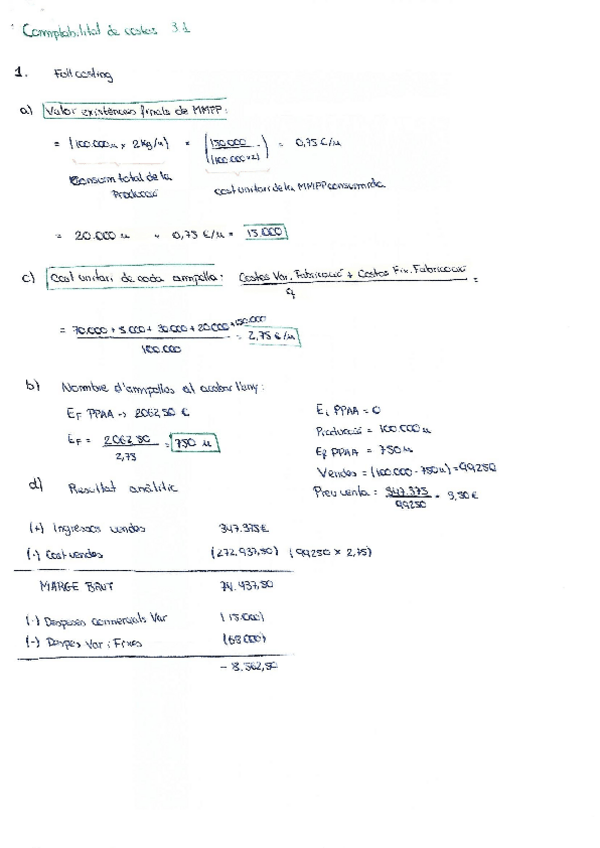 Comptabilitat de costos 3.1
1. Full costing
a) Valor existències finals de MMPP:
= (100.000u x 2kg/u) × (150.000 / (100.000x2)) = 0,75 €/u
Consum total de la Producció
cost unitari de la MMPP consumida
= 20.000 u · 0,75 €/u = 15.000
c) Cost unitari de cada ampolla: Costos Var. Fabricació + Costos Fix. Fabricació / q =
= 70.000 + 5.000 + 30.000 + 20.000 + 150.000 / 100.000 = 2,75 €/u
b) Nombre d'ampolles al acabar l'any:
EF PPAA -> 2062,50 €
EF = 2062,50 / 2,75 = 750 u
Ei PPAA = 0
Producció = 100.000 u
EF PPAA = 750 u
Vendes = (100.000 - 750u) = 99250
Preu venta: 347.375 / 99250 = 3,50€
d) Resultat analític
(+) Ingressos vendes 347.375€
(-) Cost vendes (272.937,50) (99250 x 2,75)
MARGE BRUT 74.437,50
(-) Despeses comercials Var (15.000)
(-) Despes Var i Fixes (68.000)
- 8.562,50